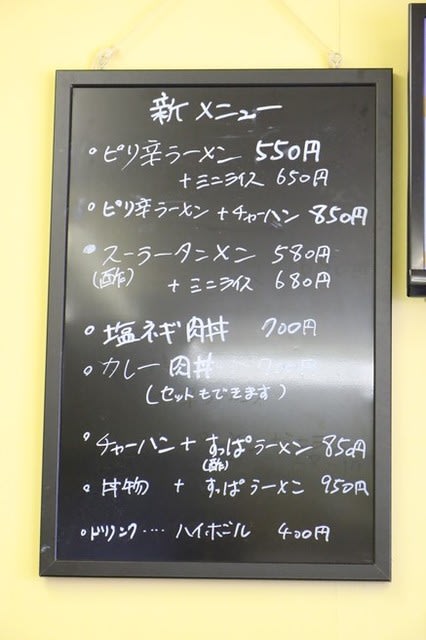 新メニュー
・ピリ辛ラーメン 550円
+ミニライス 650円
・ピリ辛ラーメン+チャーハン 850円
・スーラータンメン 580円
(酢) +ミニライス 680円
・塩ネギ肉丼 700円
・カレー肉丼
(セットもできます)
・チャーハン+すっぱラーメン 850円
(酢)
・丼物 + すっぱラーメン 950円
・ドリンク‥‥ ハイボール 400円